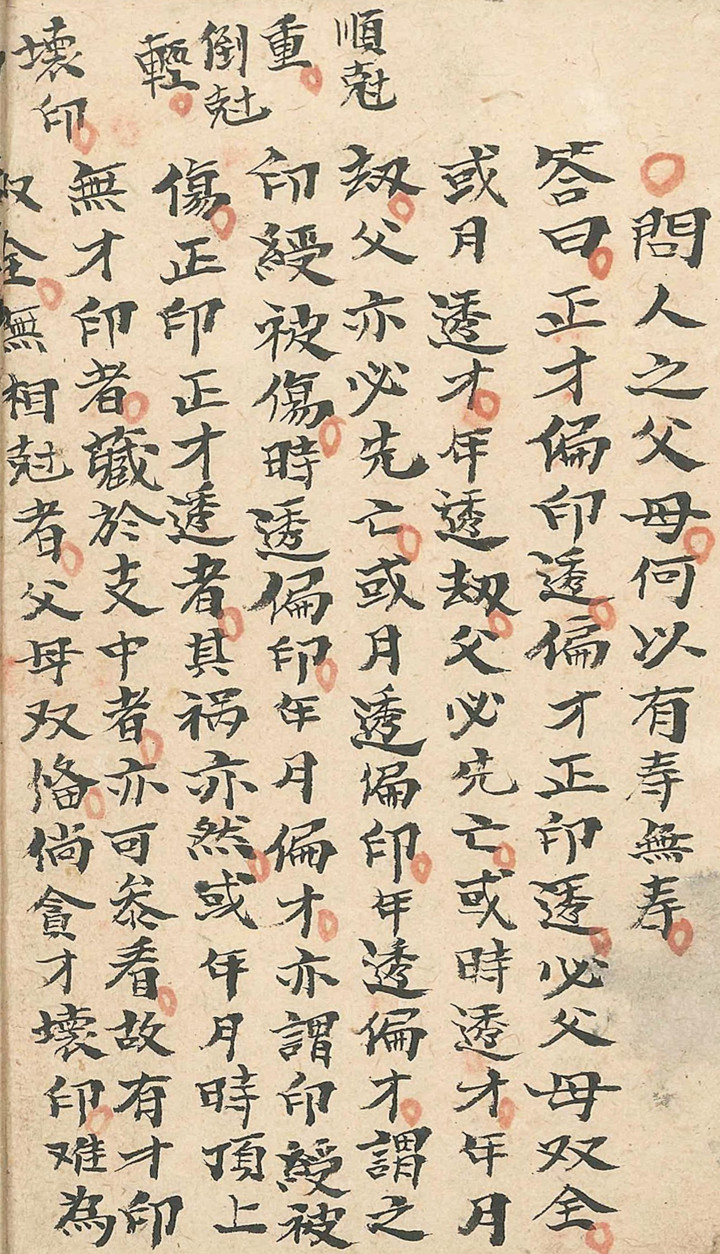 順尅
重
倒尅
輕
壞印
問人之父母何以有寿無寿
答曰正才偏印透偏才正印透必父母双全
或月透才年透刼父必先亡或時透才年月
刼父亦必先亡或月透偏印年透偏才謂之
印綬被傷時透偏印年月偏才亦謂印綬被
傷正印正才透者其禍亦然或年月時頂上
無才印者藏於支中者亦可叅看故有才印
双全無相尅者父母双俻倘貪才壞印难為